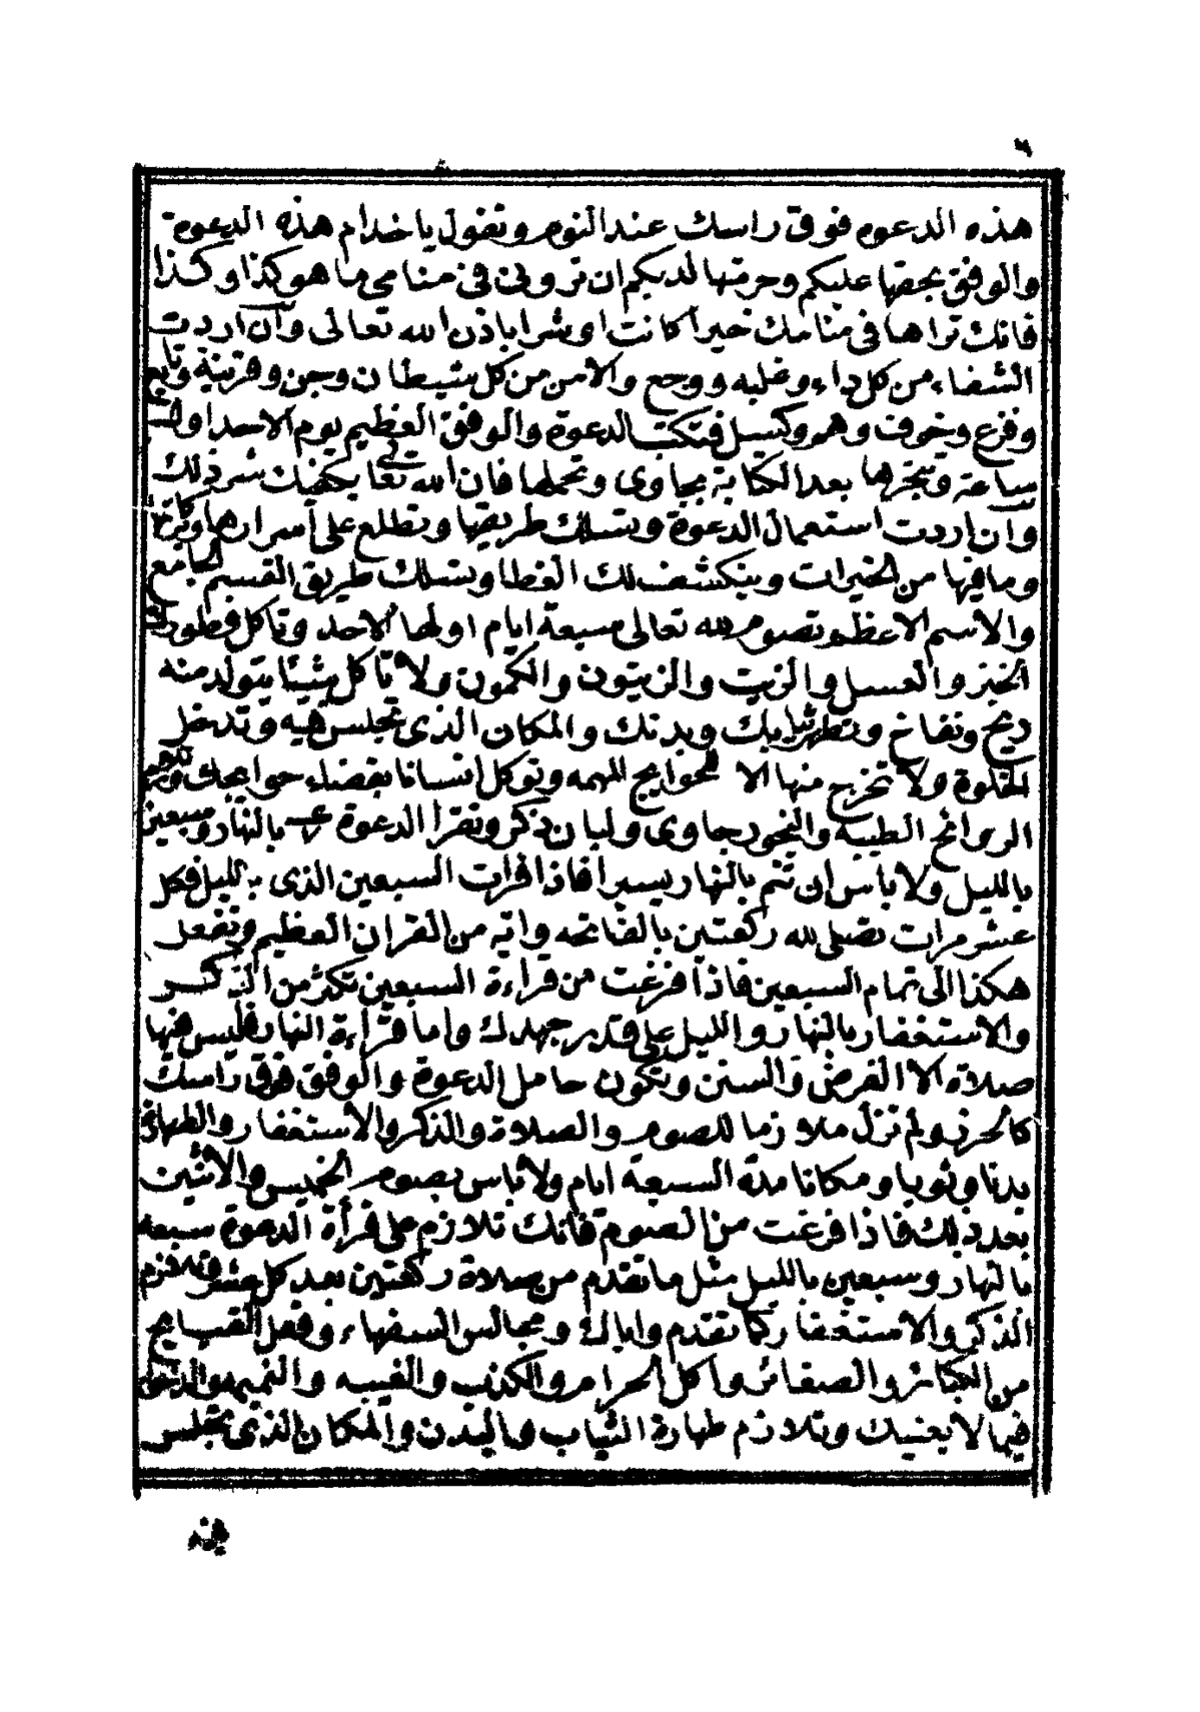 هذه الدعوه فوق راسك عند النوم وتقول يا خدام هذه الدعوة
والوفق بحقها عليكم وحرمتها لديكم ان ترونى فى منامى ما هو كذا وكذا
فانك تراها فى منامك خيرا كانت او شرا باذن الله تعالى وان اردت
الشفاء من كل داء وغلبه ووجع والامن من كل شيطان وجن وقرينة وتابع
وفزع وخوف وهم وكسل فتكتب الدعوة والوفق العظيم يوم الاحد اول
ساعة وتبخرها بعد الكتابة بجاوى وتحملها فان الله تعالى يكفيك شر ذلك
وان اردت استعمال الدعوة وتسلك طريقها وتطلع على اسرارها
وما فيها من الخيرات وينكشف لك الغطا وتسلك طريق القسم الجامع
والاسم الاعظم وتصوم لله تعالى سبعة ايام اولها الاحد وتاكل فطورك
الخبز والعسل والزيت والزيتون والكمون ولا تاكل شيئا يتولد منه
ريح ونفاخ وتطهر ثيابك وبدنك والمكان الذى تجلس فيه وتدخل
الخلوة ولا تخرج منها الا للحوايج المهمه وتوكل انسانا بقضاء حوايجك
الروائح الطيبه والبخور جاوى ولبان ذكر وتقرأ الدعوة بالنهار وسبعين
بالليل ولا باس ان تنم بالنهار يسيرا فاذا قرات السبعين الذى بالليل فكل
عشر مرات تصلى لله ركعتين بالفاتحه وايه من القران العظيم وتفعل
هكذا الى تمام السبعين فاذا فرغت من قراءة السبعين تكثر من الذكر
والاستغفار بالنهار والليل على قدر جهدك واما قرأءة النهار فليس فيها
صلاة الا الفرض والسنن وتكون حامل الدعوة والوفق فوق راسك
كالحرز ولم تزل ملازما للصوم والصلاة والذكر والاستغفار والطهارة
بدنا وثوبا ومكانا مدة السبعة ايام ولا باس بصوم الخميس والاثنين
بعد ذلك فاذا فرغت من الصوم فانك تلازم على قرأة الدعوة سبعه
بالنهار وسبعين بالليل مثل ما تقدم من صلاة ركعتين بعد كل عشر وتلازم
الذكر والاستغفار كما تقدم واياك ومجالس السفهاء وفعل القبايح
من الكبائر والصغائر واكل الحرام والكذب والغيبه والنميمه والدخول
فيما لا يعنيك وتلازم طهارة الثياب والبدن والمكان الذى تجلس
فيه